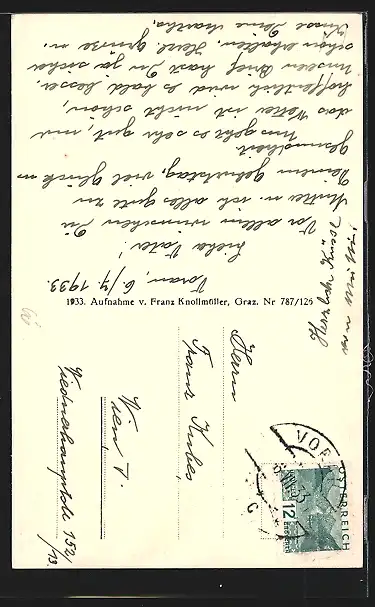 Vorau, 6/7 1933.
Lieber Vater!
Vor allem wünschen Dir
Mutter u. ich alles gute zu
Deinem Geburtstag, viel Glück u.
Gesundheit
Uns geht es sehr gut, nur
das Wetter ist nicht schön,
hoffentlich wird es bald besser.
Unseren Brief hast Du ja sicher
schon erhalten. Herzl. Grüsse u.
Küsse Deine Martha.
Herzliche Küsse
1933. Aufnahme v. Franz Knollmüller, Graz. Nr 787/126
Herrn
Franz Kubes
Wien I.
Wiednerhauptstr 152/13
VOR
ÖSTERREICH
12
GROSCHEN